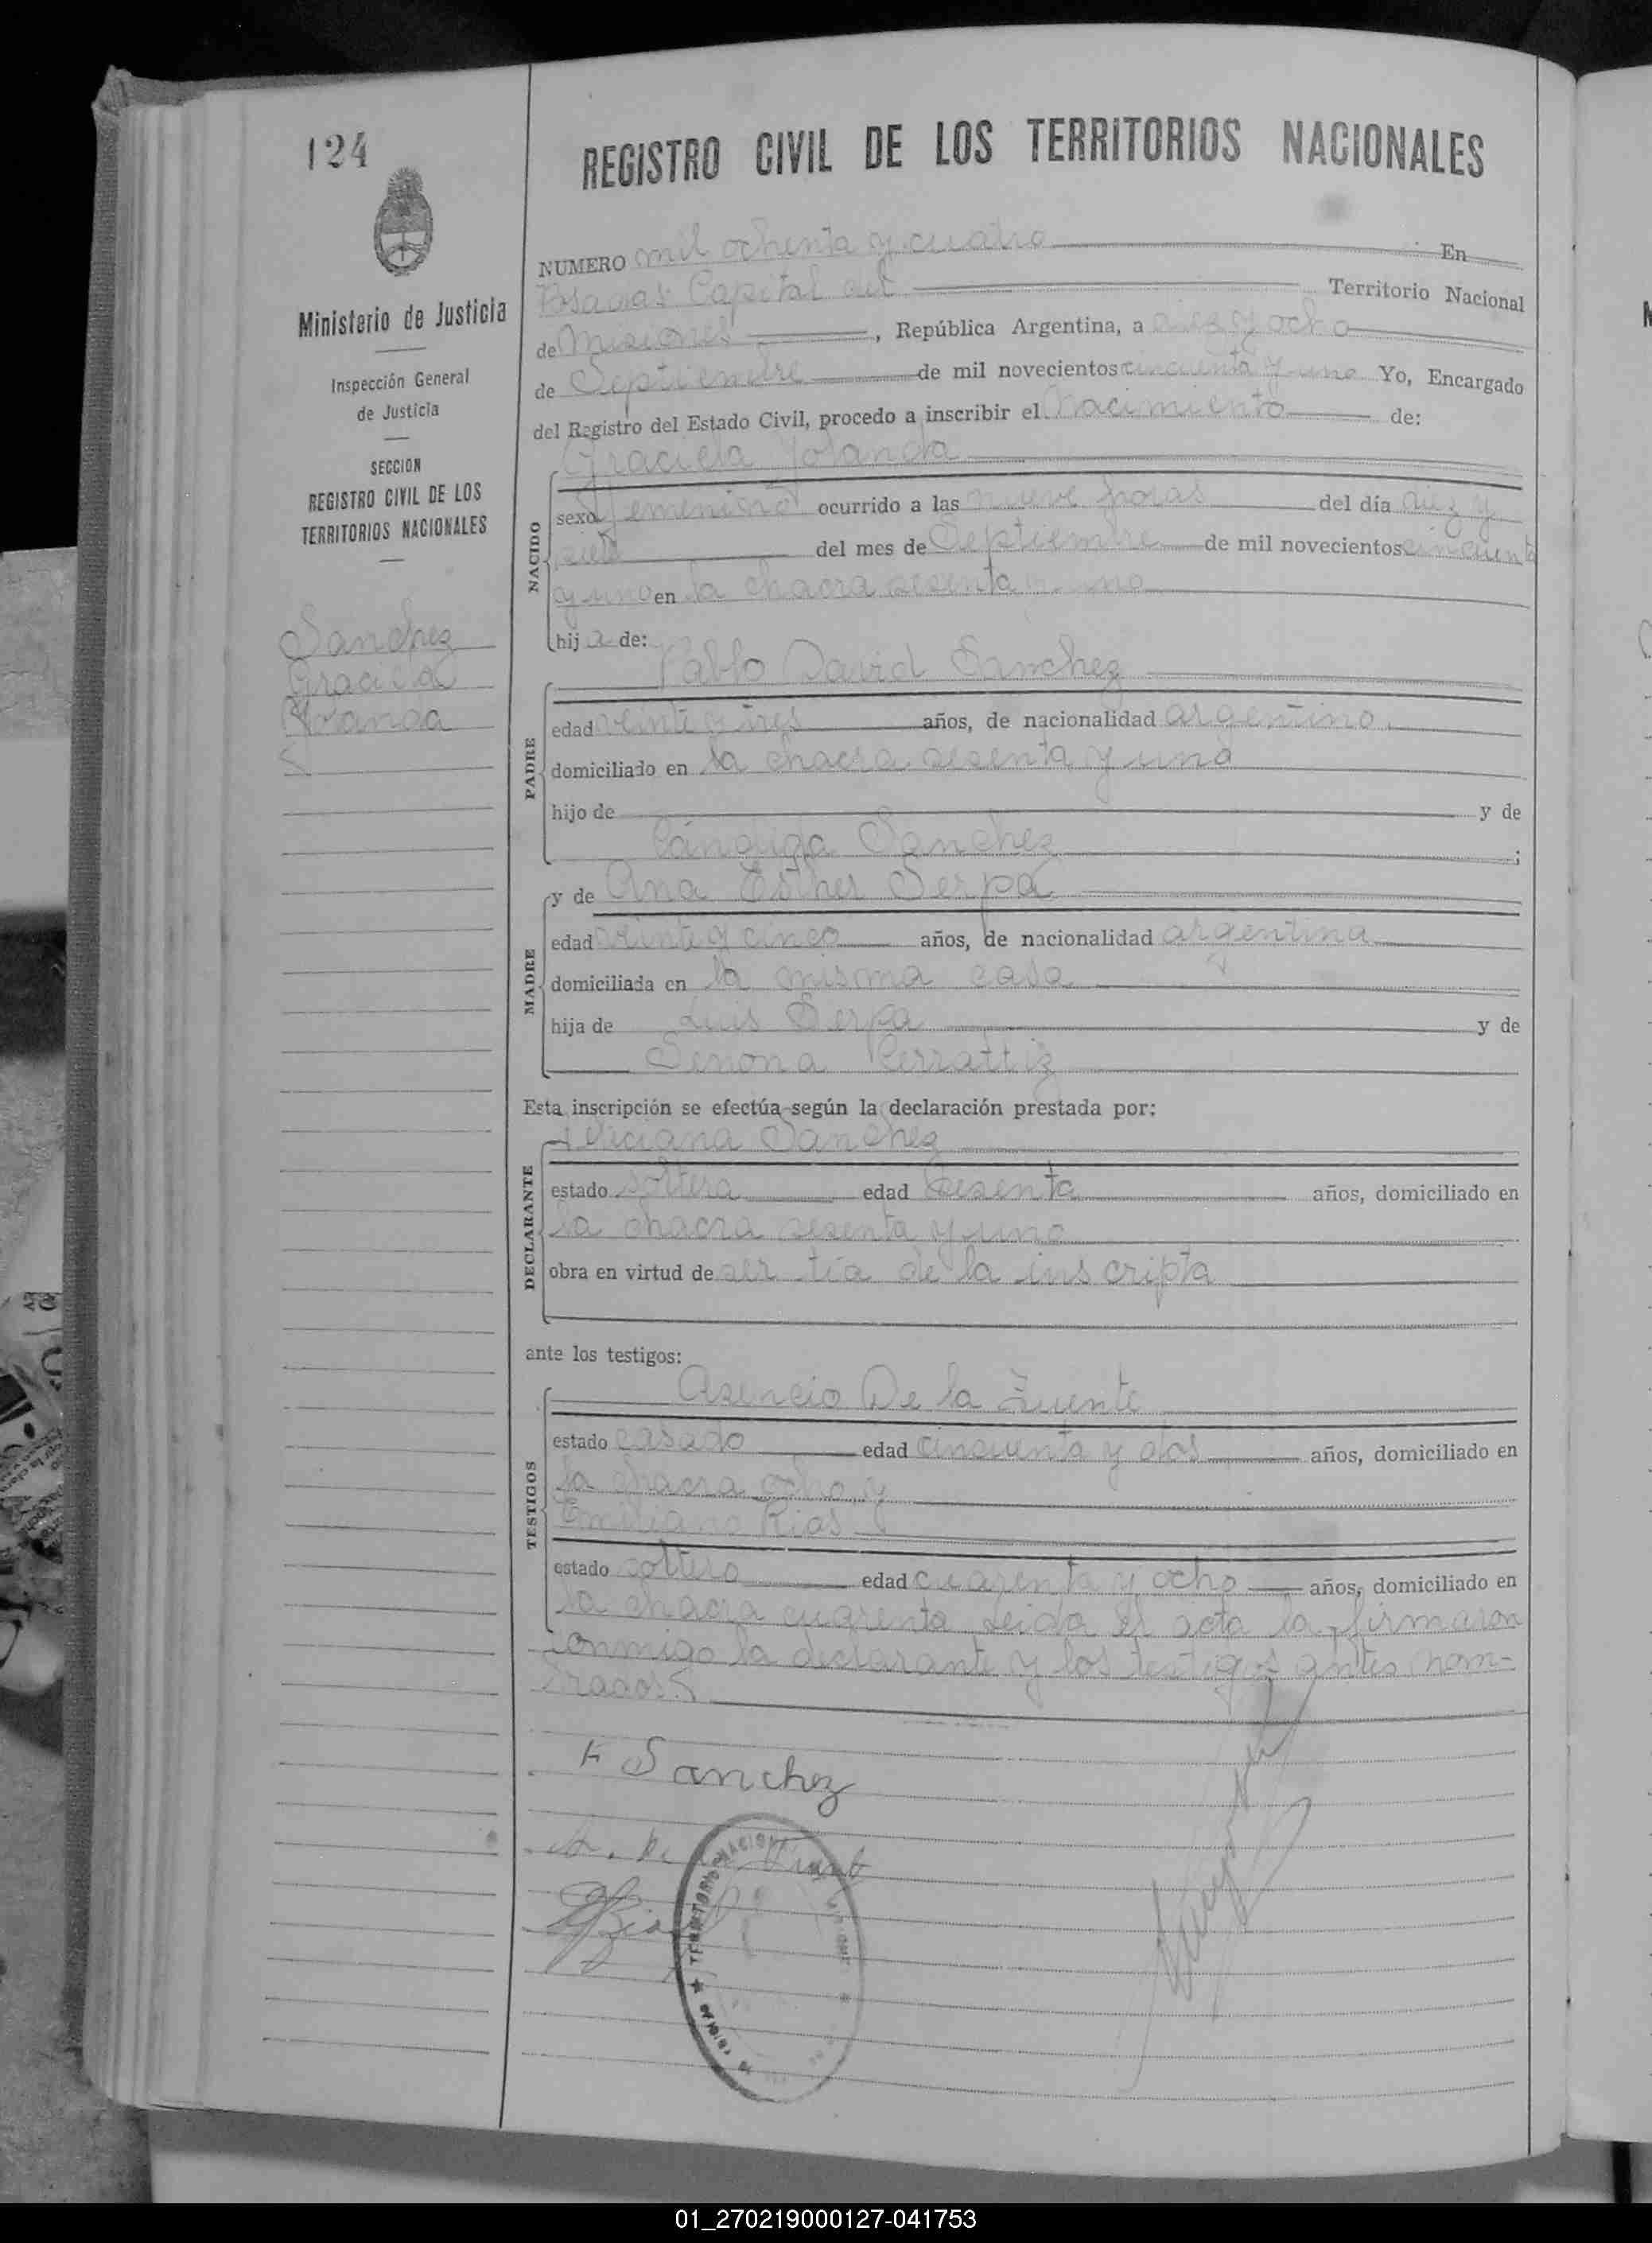 124
REGISTRO CIVIL DE LOS TERRITORIOS NACIONALES
Ministerio de Justicia
Inspección General
de Justicia
SECCION
REGISTRO CIVIL DE LOS
TERRITORIOS NACIONALES
Sanchez
Graciela
Yolanda
NUMERO mil ochenta y cuatro En
Posadas Capital del Territorio Nacional
de Misiones, República Argentina, a diez y ocho
de Septiembre de mil novecientos cincuenta y uno Yo, Encargado
del Registro del Estado Civil, procedo a inscribir el Nacimiento de:
Graciela Yolanda
NACIDO
sexo femenino ocurrido a las nueve horas del día diez y
siete del mes de Septiembre de mil novecientos cincuenta
y uno en la chacra sesenta y uno
hij a de:
Pablo David Sanchez
PADRE
edad veinte y tres años, de nacionalidad argentino
domiciliado en la chacra sesenta y uno
hijo de y de
Cándida Sanchez ;
MADRE
y de Ana Esther Serpa
edad veinte y cinco años, de nacionalidad argentina
domiciliada en la misma casa
hija de Luis Serpa y de
Senona
Esta inscripción se efectúa según la declaración prestada por:
Feliciana Sanchez
DECLARANTE
estado soltera edad sesenta años, domiciliado en
la chacra sesenta y uno
obra en virtud de ser tía de la inscripta
ante los testigos:
Asencio De la Fuente
TESTIGOS
estado casado edad cincuenta y dos años, domiciliado en
la chacra ocho y
Emiliano Rios
estado soltero edad cuarenta y ocho años, domiciliado en
la chacra cuarenta Leida el acta la firmaron
conmigo la declarante y los testigos antes nom-
brados
F Sanchez
TERRITORIO NACIONAL
01_270219000127-041753